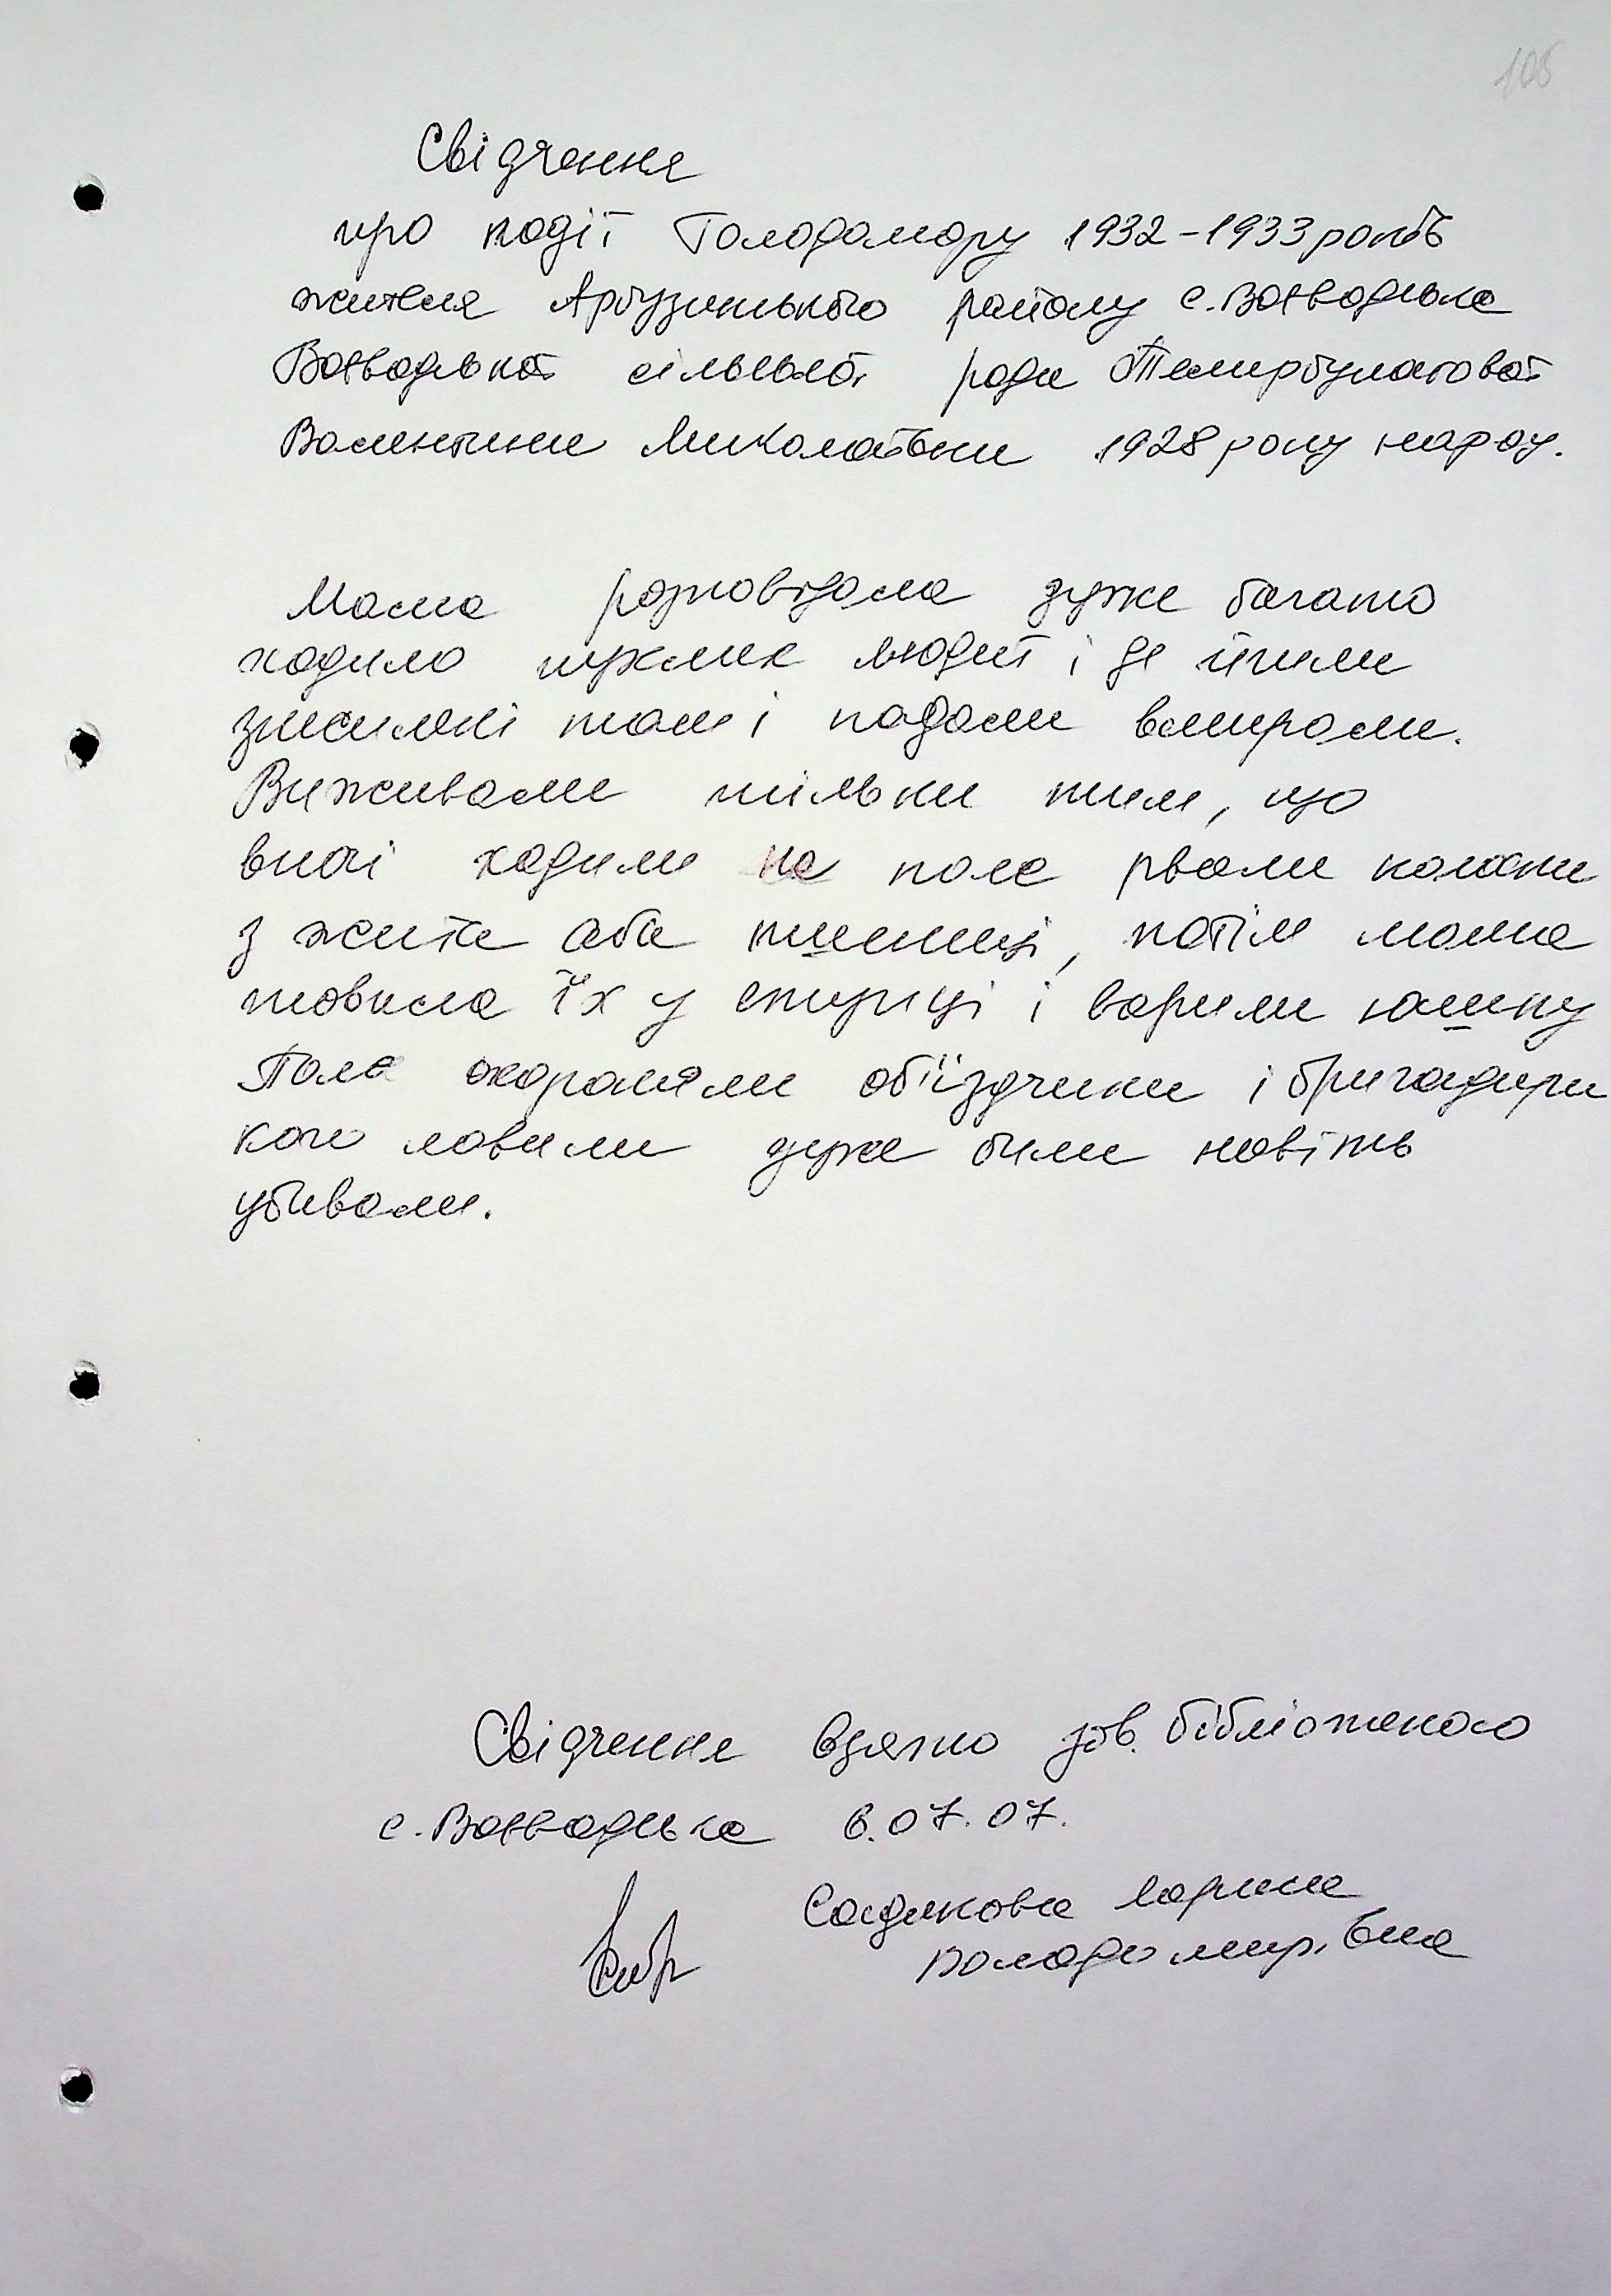 105
Свідчення
про події Голодомору 1932-1933 років
жителя Арбузинського району с. Воєводське
Воєводської сільської ради Темирбулатової
Валентини Миколаївни 1928 року народ.
Мама розповідала дуже багато
ходило пухлих людей і де йшли
знесилені там і падали вмирали.
Виживали тільки тим, що
вночі ходили на поле рвали колоски
з жита або пшениці, потім мама
товкла їх у ступці і варили кашку
Поле охороняли об'їздчики і бригадири
кого ловили дуже били навіть
убивали.
Свідчення взято зав. бібліотекою
с. Воєводське 6.07.07.
Садикова Лариса
Володимирівна